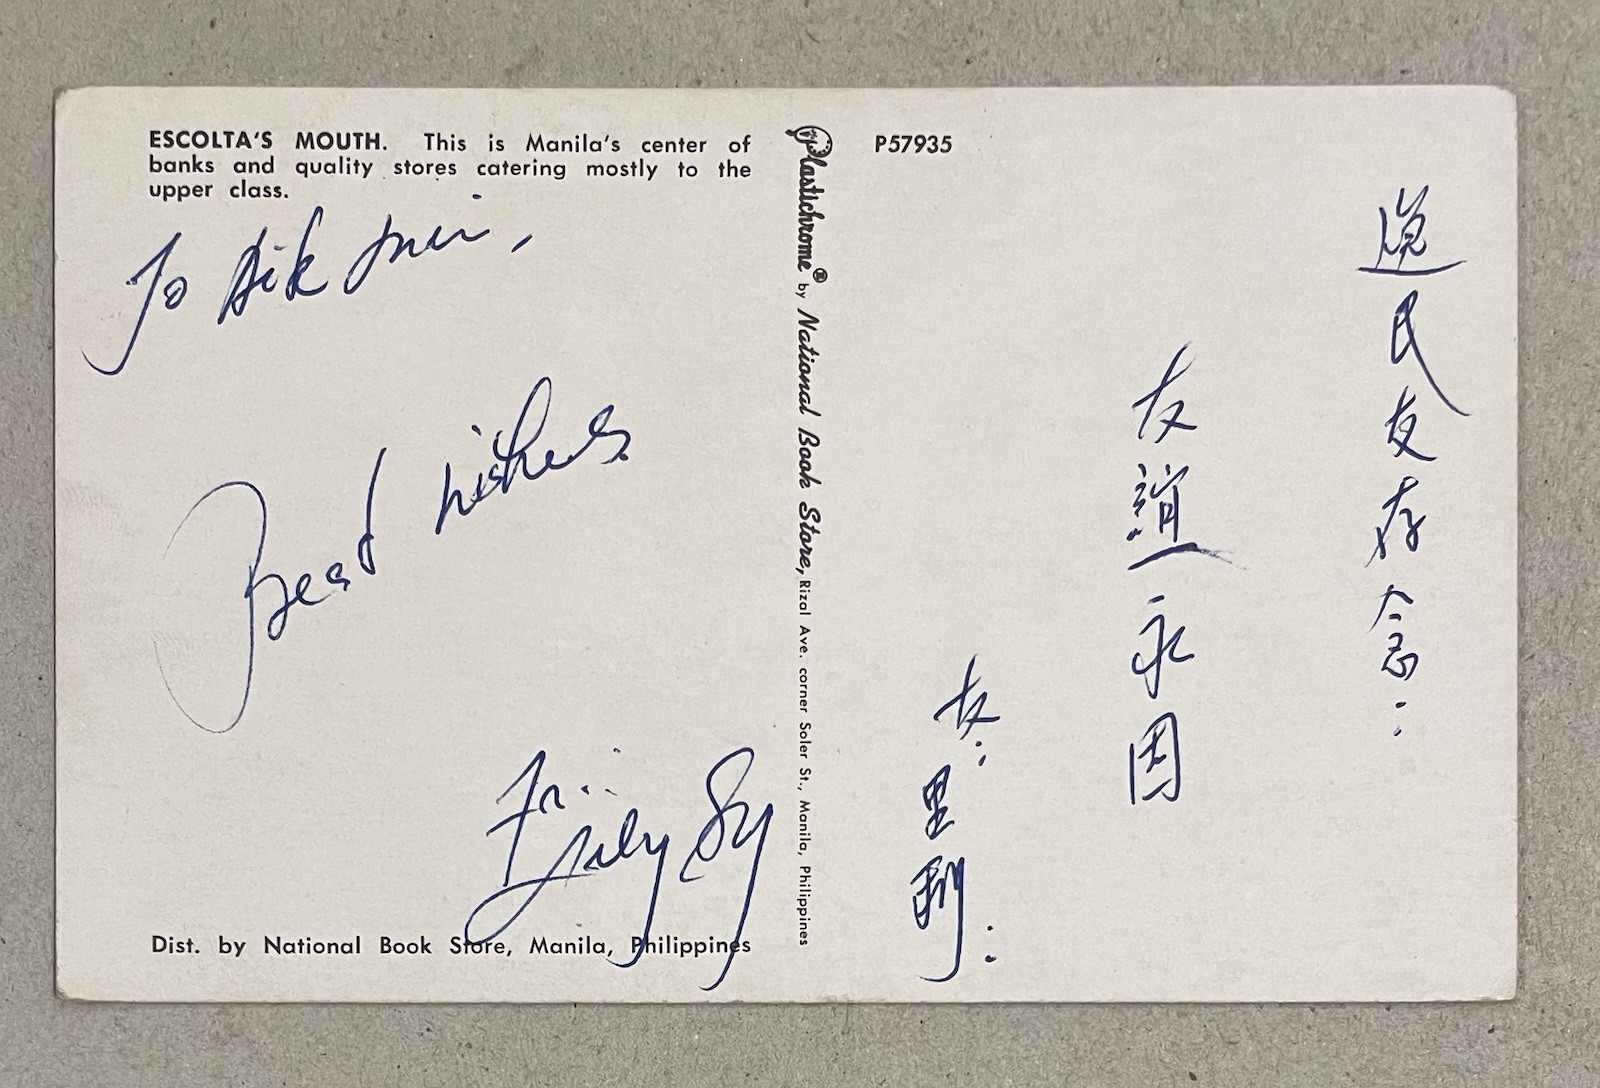 ESCOLTA'S MOUTH. This is Manila's center of
banks and quality stores catering mostly to the
upper class.
To Aik
Best wishes
Fr: Lily Sy
Dist. by National Book Store, Manila, Philippines
Plastichrome® by National Book Store, Rizal Ave. corner Soler St., Manila, Philippines
P57935
民友存念:
友誼永固
友: 里